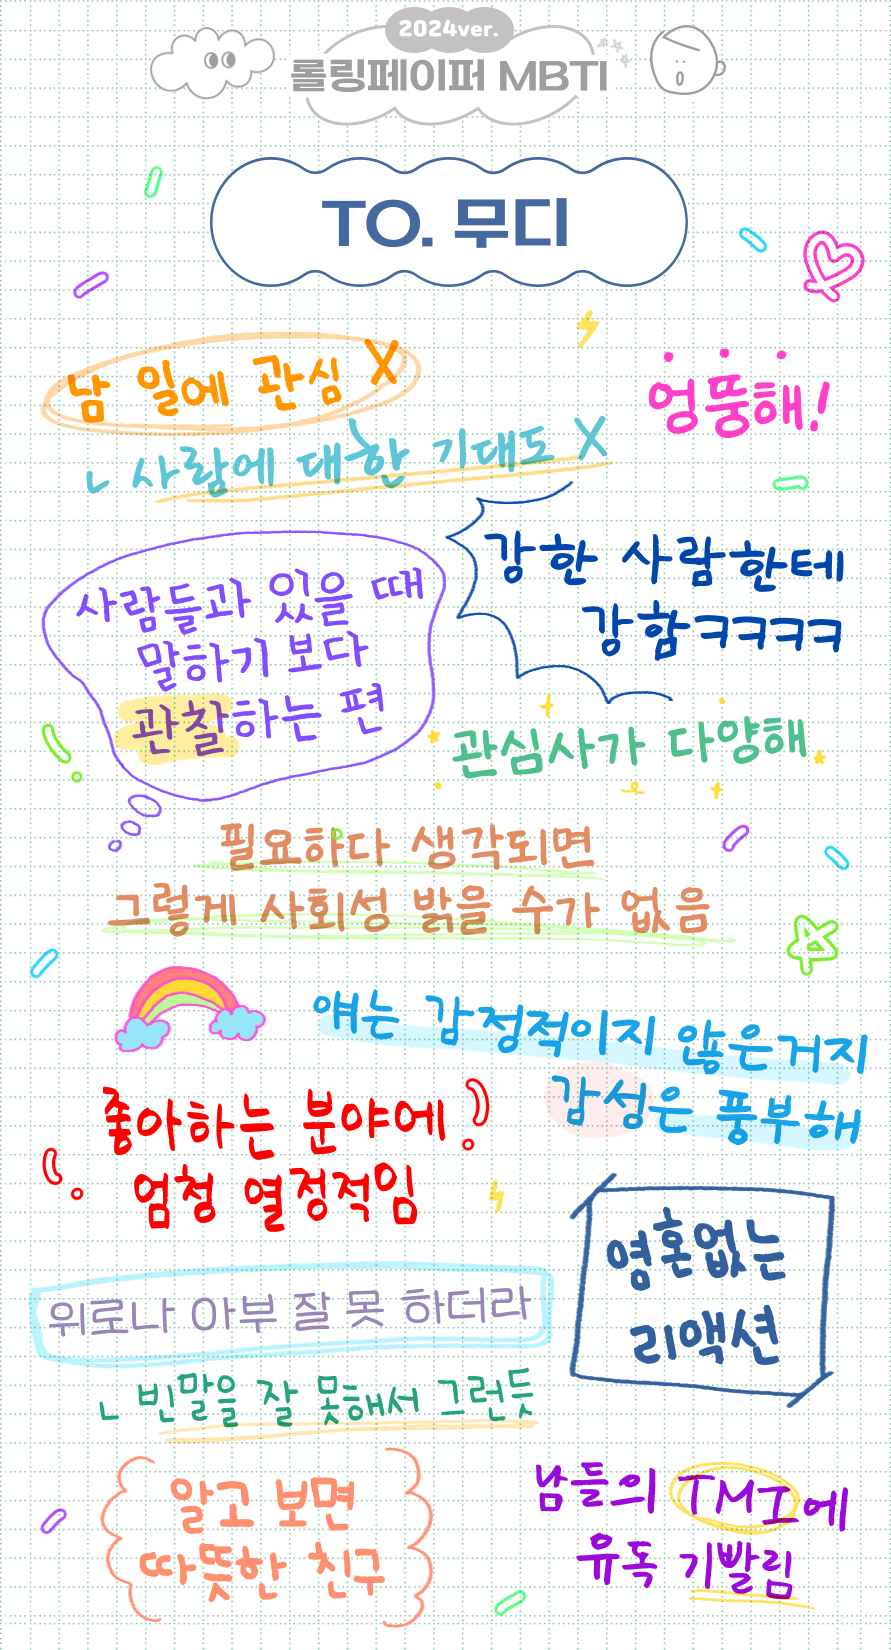 2024ver.
롤링페이퍼 MBTI
TO. 무디
남 일에 관심 X
엉뚱해!
ㄴ 사람에 대한 기대도 X
강한 사람한테
강함ㅋㅋㅋㅋ
사람들과 있을 때
말하기 보다
관찰하는 편
관심사가 다양해
필요하다 생각되면
그렇게 사회성 밝을 수가 없음
얘는 감정적이지 않은거지
감성은 풍부해
좋아하는 분야에
엄청 열정적임
영혼없는
리액션
위로나 아부 잘 못 하더라
ㄴ 빈말을 잘 못해서 그런듯
알고 보면
따뜻한 친구
남들의 TMI에
유독 기빨림